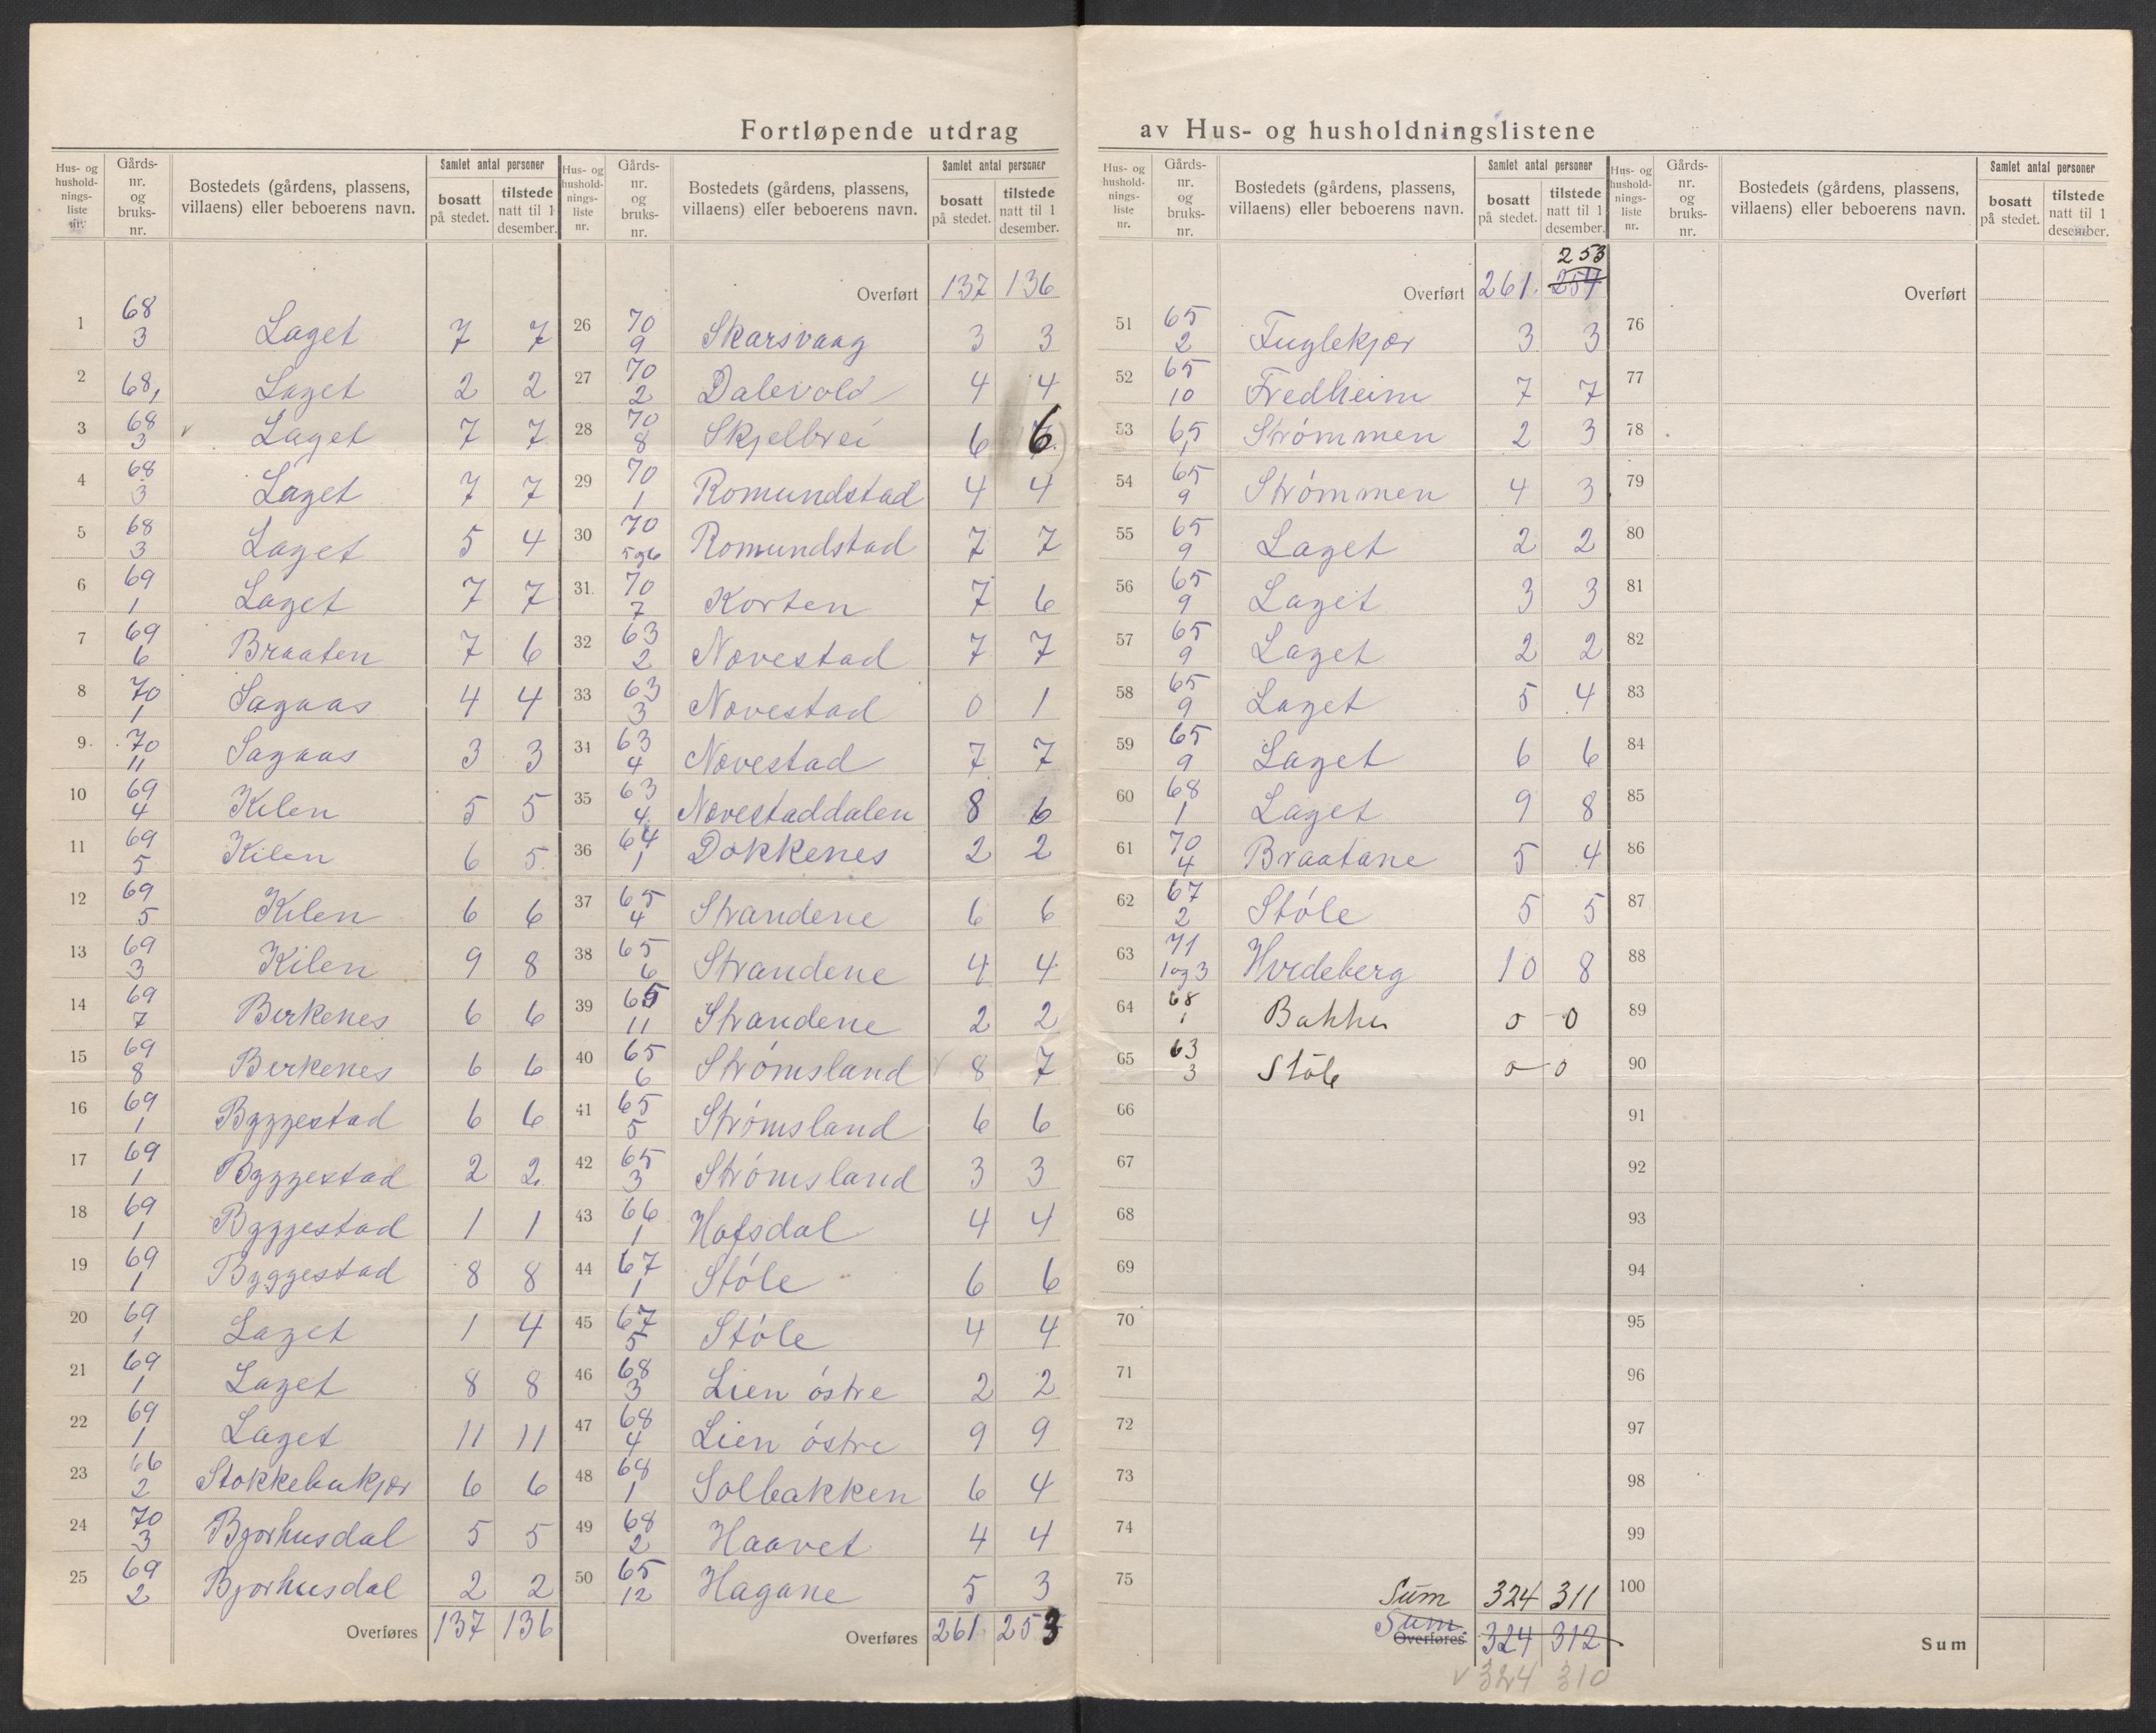 Fortløpende utdrag av Hus- og husholdningslistene
Hus- og hushold-nings-liste nr. Gårds-nr. og bruks-nr. Bostedets (gårdens, plassens, villaens) eller beboerens navn. Samlet antal personer bosatt på stedet. tilstede natt til 1 desember.
1 68 3 Laget 7 7
2 68, Laget 2 2
3 68 3 v Laget 7 7
4 68 3 Laget 7 7
5 68 3 Laget 5 4
6 69 1 Laget 7 7
7 69 6 Braaten 7 6
8 70 1 Sagaas 4 4
9 70 11 Sagaas 3 3
10 69 4 Kilen 5 5
11 69 5 Kilen 6 5
12 69 5 Kilen 6 6
13 69 3 Kilen 9 8
14 69 7 Birkenes 6 6
15 69 8 Birkenes 6 6
16 69 1 Byggestad 6 6
17 69 1 Byggestad 2 2
18 69 1 Byggestad 1 1
19 69 1 Byggestad 8 8
20 69 1 Laget 1 4
21 69 1 Laget 8 8
22 69 1 Laget 11 11
23 66 2 Stokkebukjær 6 6
24 70 3 Bjorhusdal 5 5
25 69 2 Bjorhusdal 2 2
Overføres 137 136
Hus- og hushold-nings-liste nr. Gårds-nr. og bruks-nr. Bostedets (gårdens, plassens, villaens) eller beboerens navn. Samlet antal personer bosatt på stedet. tilstede natt til 1 desember.
Overført 137 136
26 70 9 Skarsvaag 3 3
27 70 2 Dalevold 4 4
28 70 8 Skjelbrei 6 6
29 70 1 Romundstad 4 4
30 70 5og6 Romundstad 7 7
31. 70 7 Korten 7 6
32 63 2 Nævestad 7 7
33 63 3 Nævestad 0 1
34 63 4 Nævestad 7 7
35 63 4 Nævestaddalen 8 6
36 64 1 Dokkenes 2 2
37 65 4 Strandene 6 6
38 65 6 Strandene 4 4
39 65 11 Strandene 2 2
40 65 6 Strømsland 8 7
41 65 5 Strømsland 6 6
42 65 3 Strømsland 3 3
43 66 1 Hafsdal 4 4
44 67 1 Støle 6 6
45 67 5 Støle 4 4
46 68 3 Lien østre 2 2
47 68 4 Lien østre 9 9
48 68 1 Solbakken 6 4
49 68 2 Haavet 4 4
50 65 12 Hagane 5 3
Overføres 261 253
Hus- og hushold-nings-liste nr. Gårds-nr. og bruks-nr. Bostedets (gårdens, plassens, villaens) eller beboerens navn. Samlet antal personer bosatt på stedet. tilstede natt til 1 desember.
253
Overført 261 254
51 65 2 Fuglekjær 3 3
52 65 10 Fredheim 7 7
53 65, 1 Strømmen 2 3
54 65 9 Strømmen 4 3
55 65 9 Laget 2 2
56 65 9 Laget 3 3
57 65 9 Laget 2 2
58 65 9 Laget 5 4
59 65 9 Laget 6 6
60 68 1 Laget 9 8
61 70 4 Braatane 5 4
62 67 2 Støle 5 5
63 71 1og3 Hvideberg 10 8
64 68 1 Bakken 0 0
65 63 3 Støle 0 0
66
67
68
69
70
71
72
73
74
75
Sum 324 311
Sum. Overføres 324 312
v 324 310
Hus- og hushold-nings-liste nr. Gårds-nr. og bruks-nr. Bostedets (gårdens, plassens, villaens) eller beboerens navn. Samlet antal personer bosatt på stedet. tilstede natt til 1 desember.
Overført
76
77
78
79
80
81
82
83
84
85
86
87
88
89
90
91
92
93
94
95
96
97
98
99
100
Sum